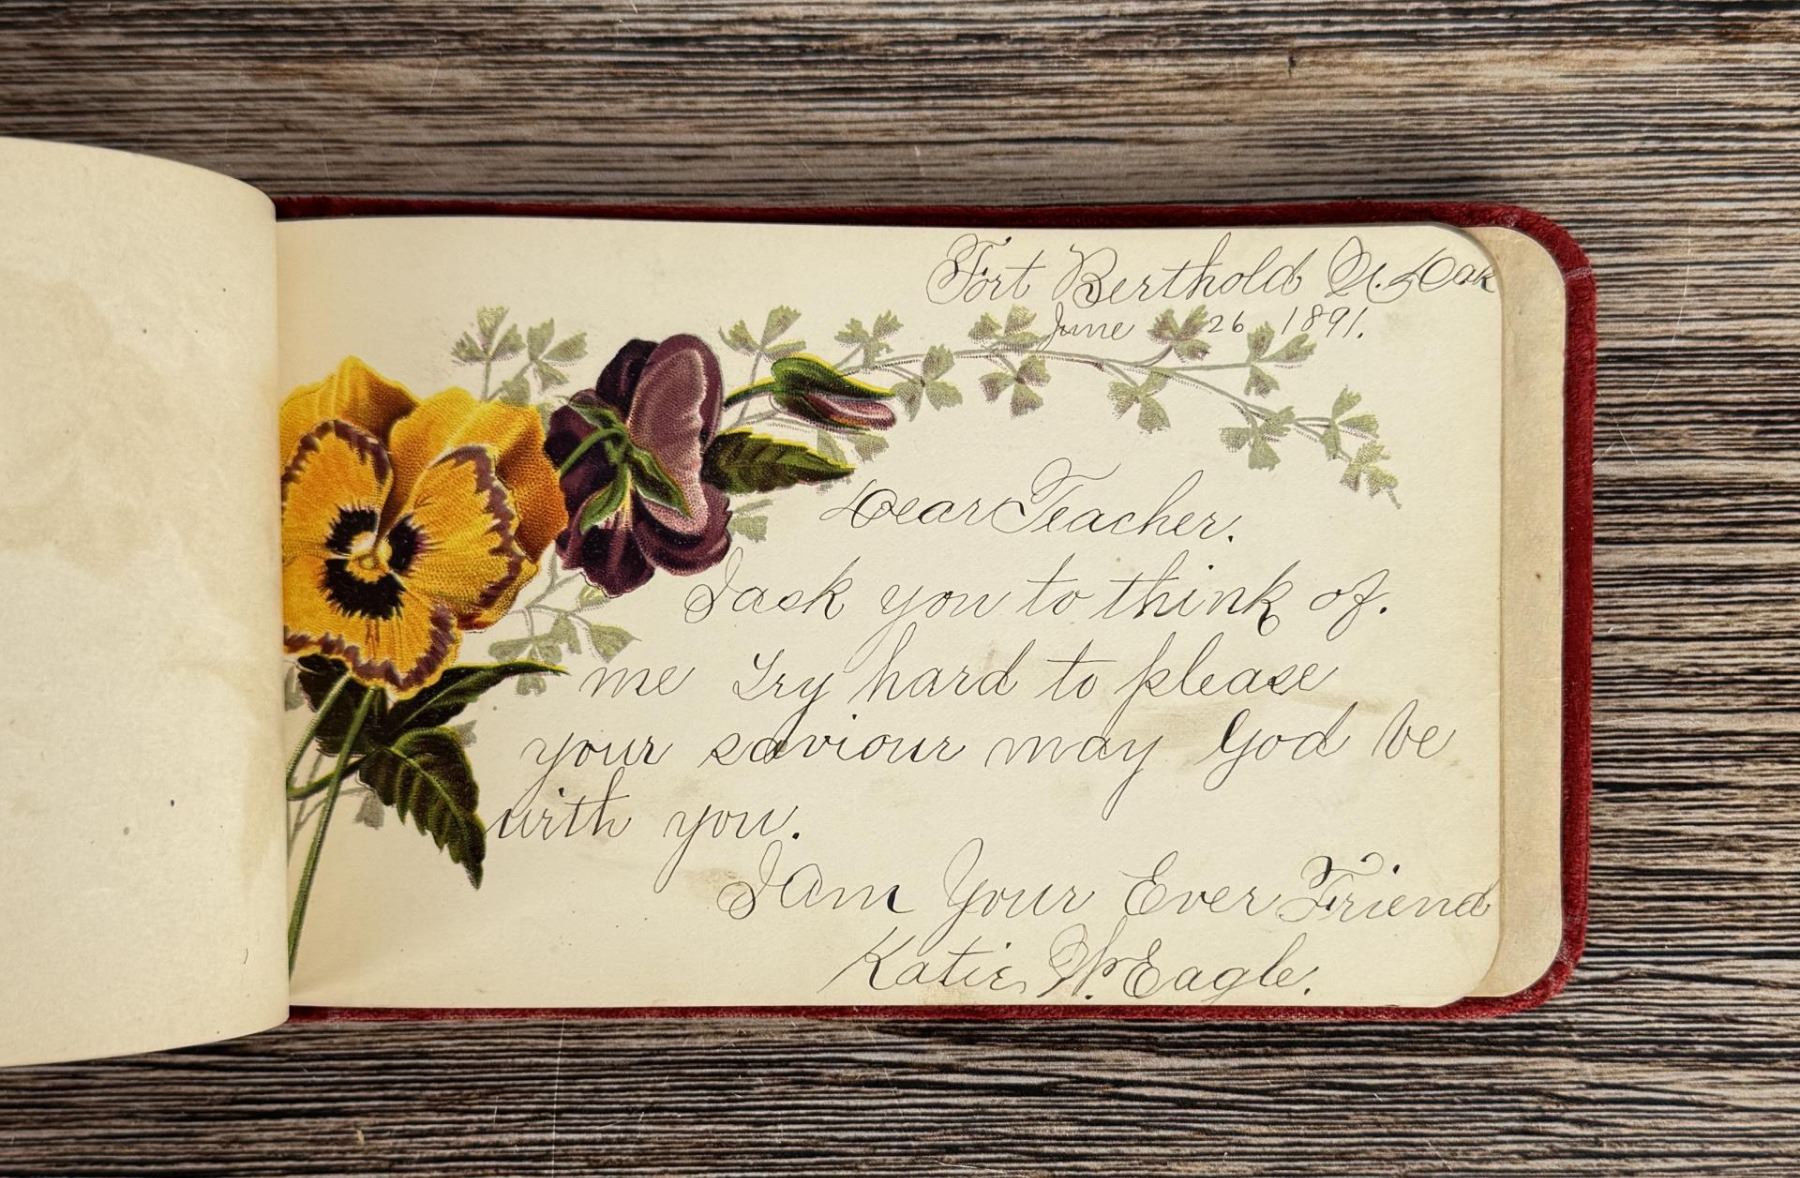 Fort Berthold N. Dak
June 26 1891.
Dear Teacher.
I ask you to think of.
me Try hard to please
your saviour may God be
with you.
I Am Your Ever Friend
Katie, W. Eagle.